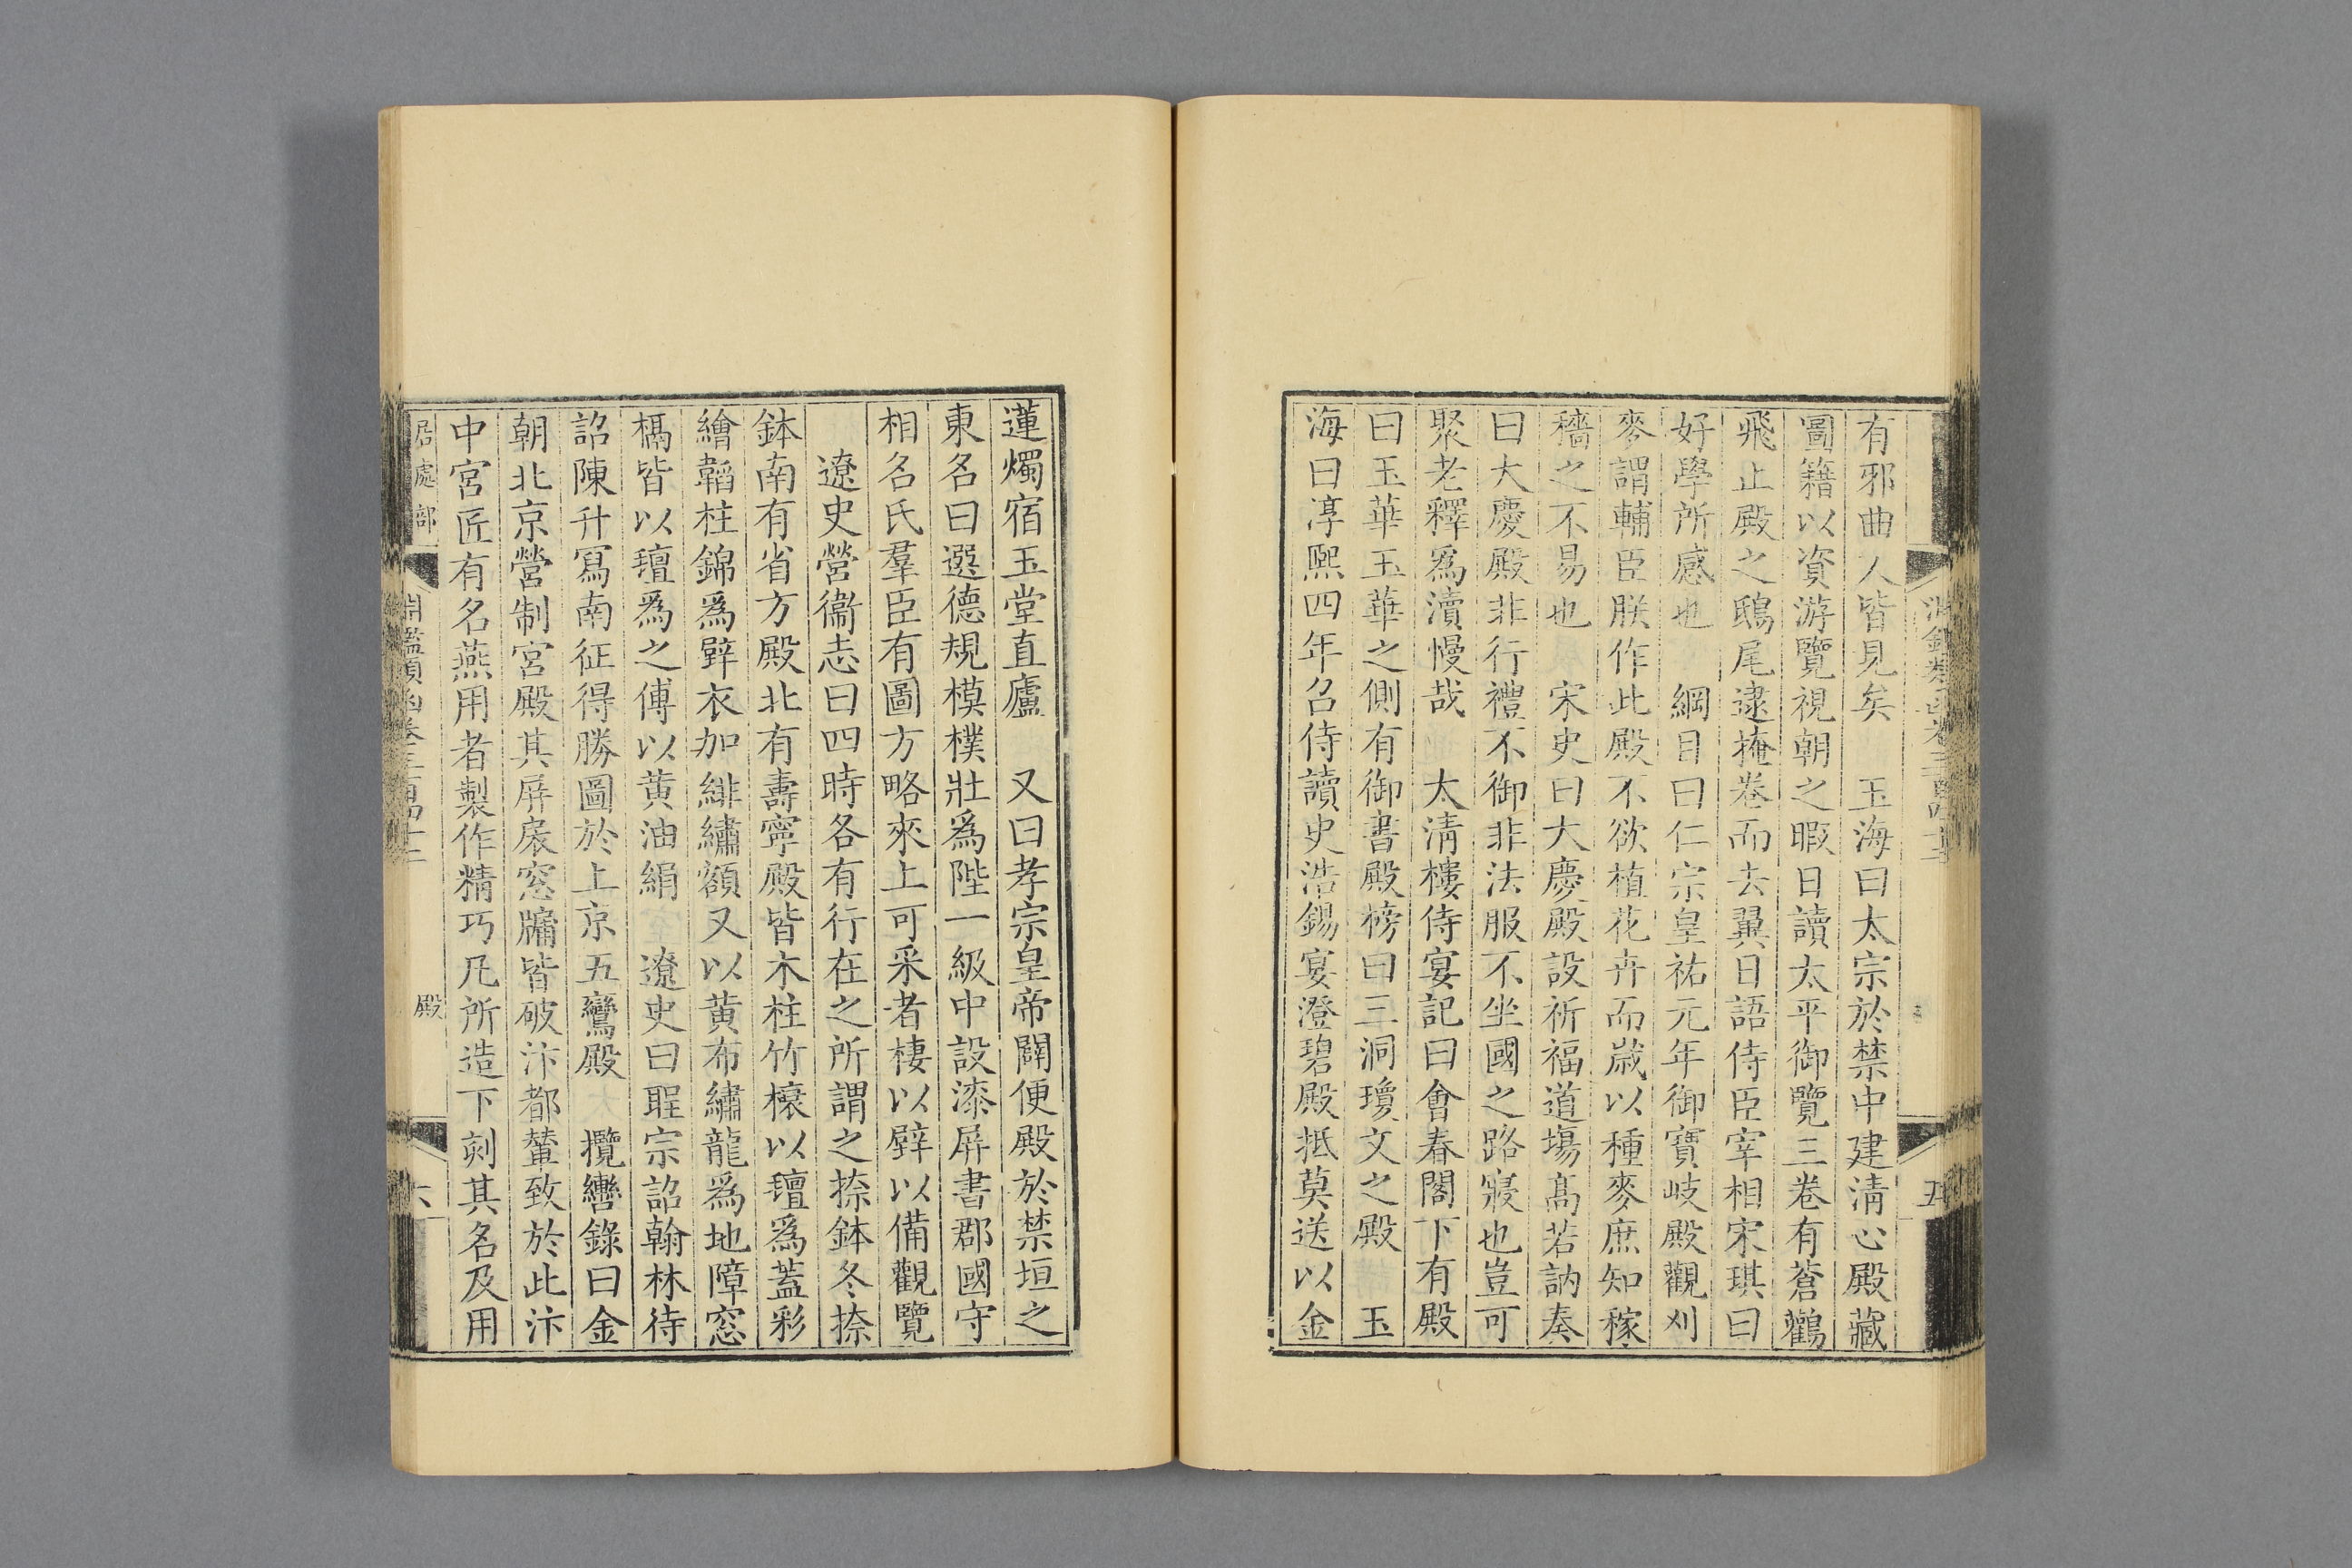 有邪曲人皆見矣　玉海曰太宗於禁中建淸心殿藏
圖籍以資游覽視朝之暇日讀太平御覽三卷有蒼鸛
飛止殿之鴟尾逮掩卷而去翼日語侍臣宰相宋琪曰
好學所感也　綱目曰仁宗皇祐元年御寶岐殿觀刈
麥謂輔臣朕作此殿不欲植花卉而歲以種麥庶知稼
穡之不易也　宋史曰大慶殿設祈福道場髙若訥奏
曰大慶殿非行禮不御非法服不坐國之路寢也豈可
聚老釋爲瀆慢哉　太淸樓侍宴記曰會春閣下有殿
曰玉華玉華之側有御書殿榜曰三洞瓊文之殿　玉
海曰淳熙四年召侍讀史浩錫宴澄碧殿抵莫送以金
蓮燭宿玉堂直廬　又曰孝宗皇帝闢便殿於禁垣之
東名曰選德規模樸壯爲陛一級中設漆屛書郡國守
相名氏羣臣有圖方略來上可采者棲以壁以備觀覽
遼史營衞志曰四時各有行在之所謂之捺鉢冬捺
鉢南有省方殿北有壽寧殿皆木柱竹榱以氊爲蓋彩
繪韜柱錦爲壁衣加緋繡額又以黄布繡龍爲地障窓
槅皆以氊爲之傅以黄油絹　遼史曰聖宗詔翰林待
詔陳升冩南征得勝圖於上京五鸞殿　攬轡錄曰金
朝北京營制宮殿其屛扆窓牖皆破汴都輦致於此汴
中宮匠有名燕用者製作精巧凡所造下刻其名及用
居處部
殿
六